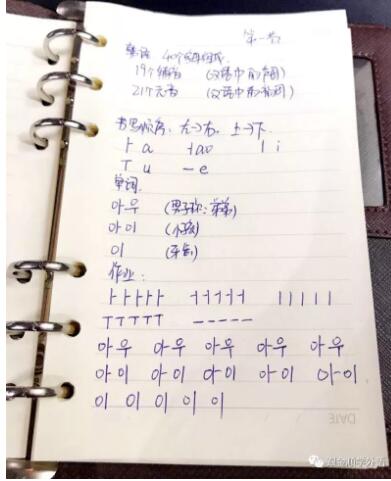 第一节
韩语 40个字母组成
19个辅音 (义语中有辅词)
21个元音
书写顺序: 左→右, 上→下
ㅏ a ㅓ ao ㅣ i
ㅜ u ㅡ e
单词.
아우 (男子称: 弟弟)
아이 (小孩)
이 (牙齿)
作业:
ㅏㅏㅏㅏㅏ ㅓㅓㅓㅓㅓ ㅣㅣㅣㅣㅣ
ㅜㅜㅜㅜㅜ ㅡㅡㅡㅡㅡ
아우 아우 아우 아우 아우
아이 아이 아이 아이 아이
이 이 이 이 이
DATE